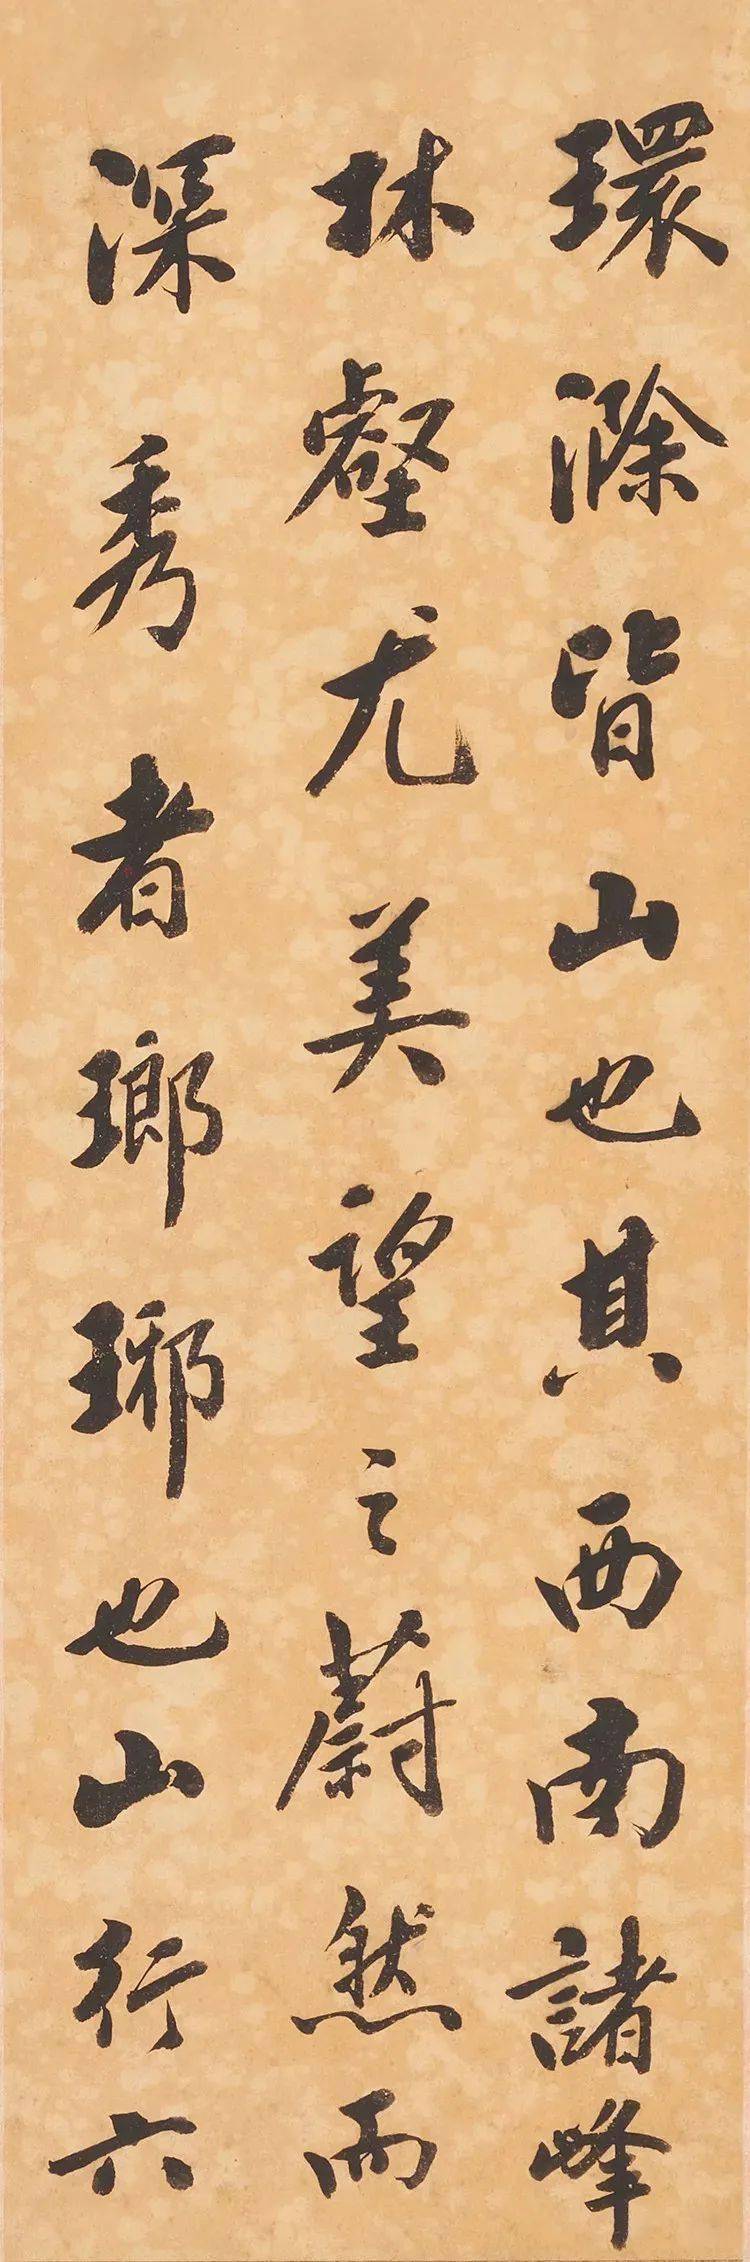 環滁皆山也其西南諸峰
林壑尤美望之蔚然而
深秀者瑯琊也山行六